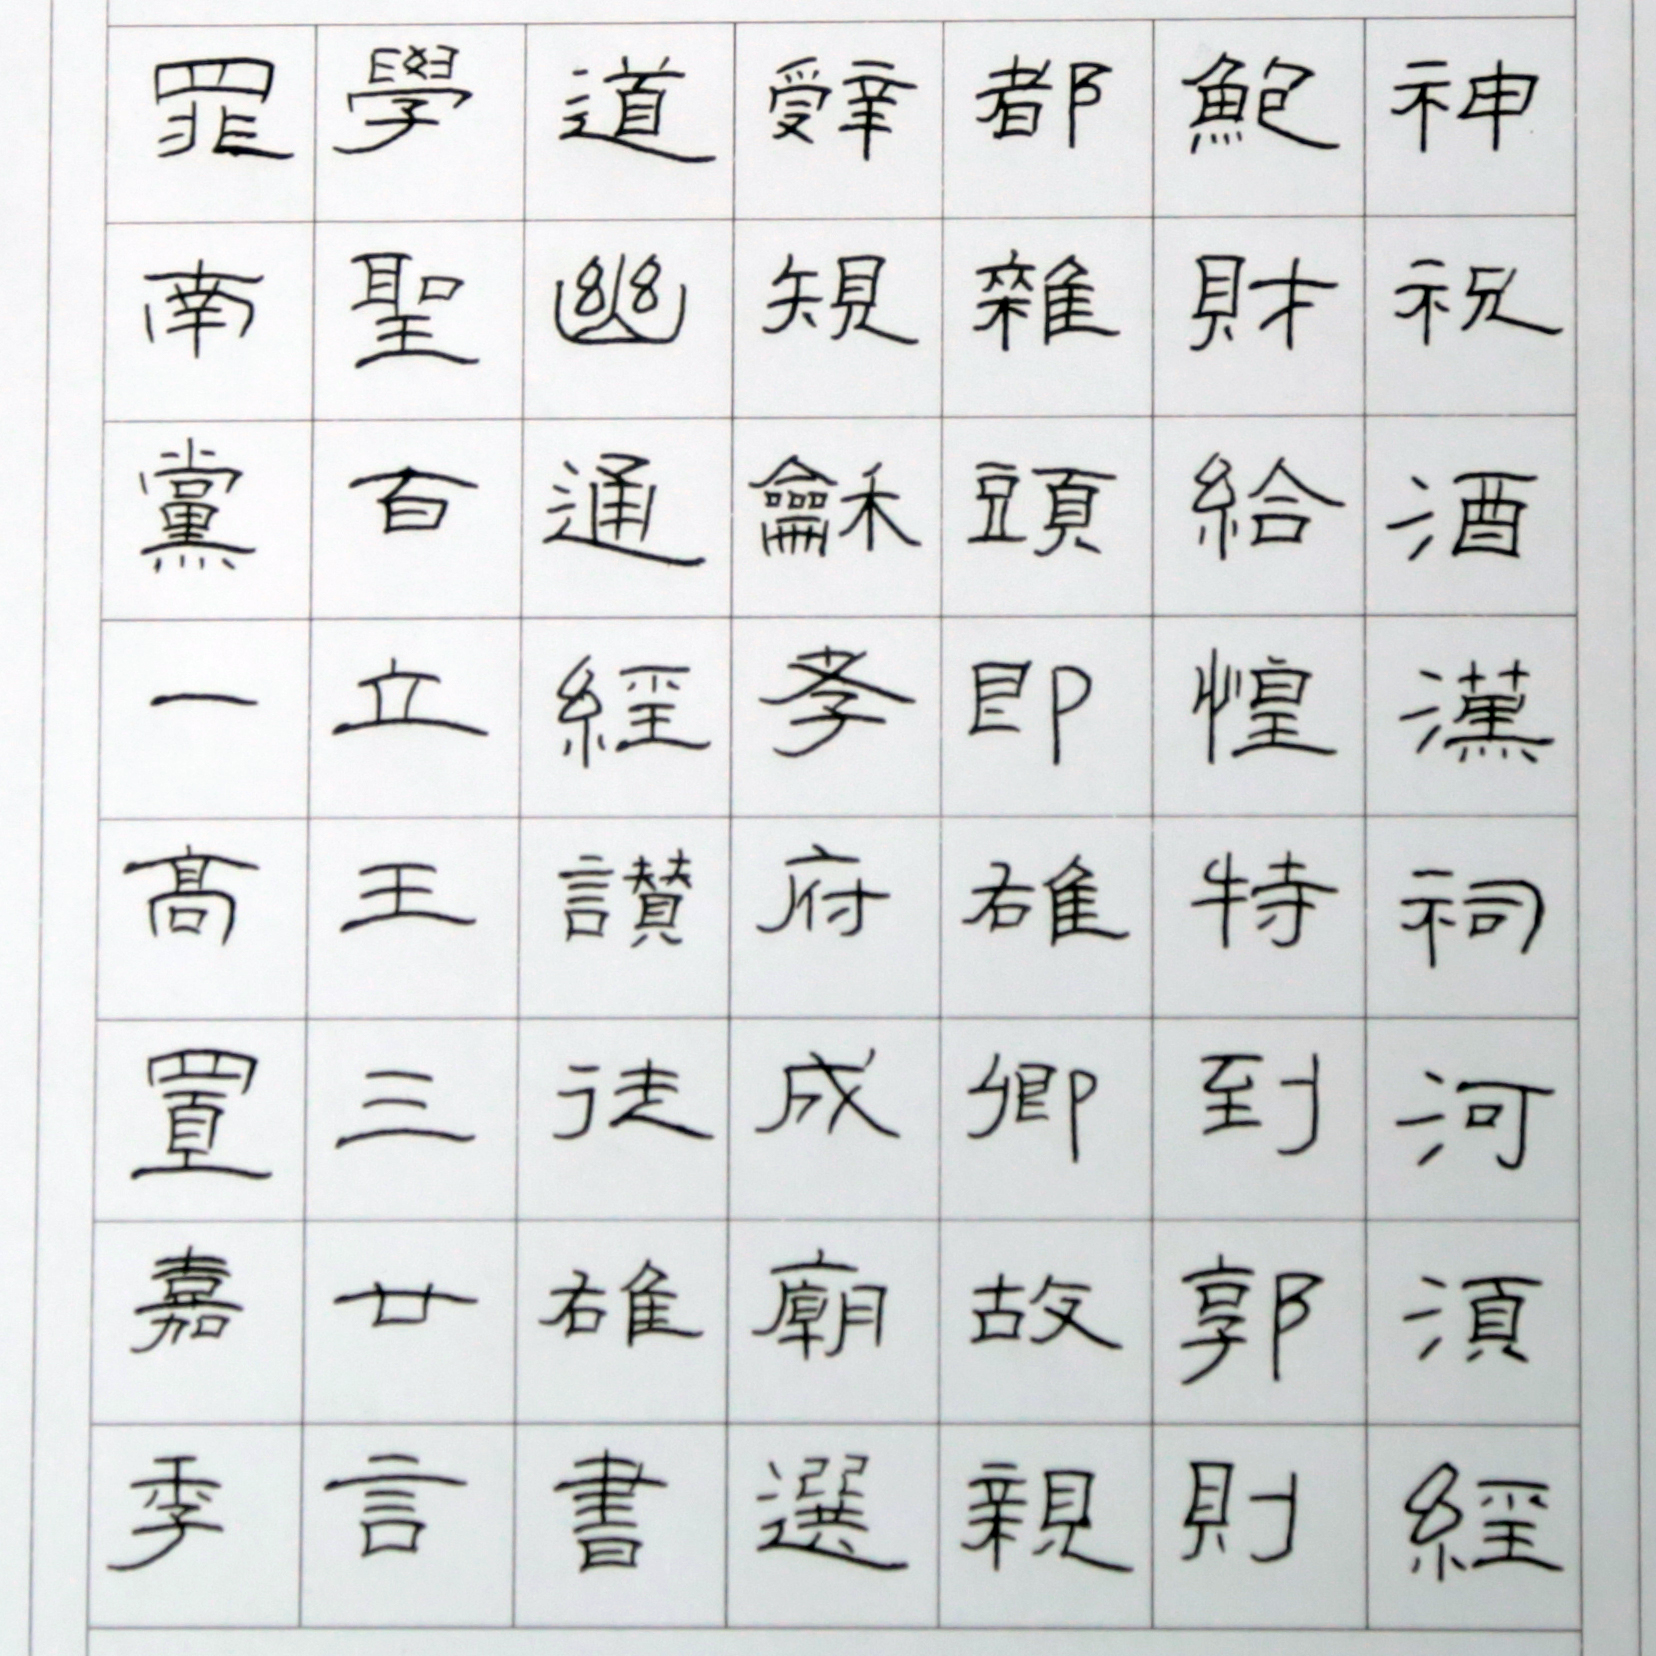 神祝酒漢祠河須經
鮑財給惶特到郭則
都雜頭即雄卿故親
辤䂓龢孝府成廟選
道幽通經讃徒雄書
學聖百立王三廿言
罪南黨一髙置嘉季